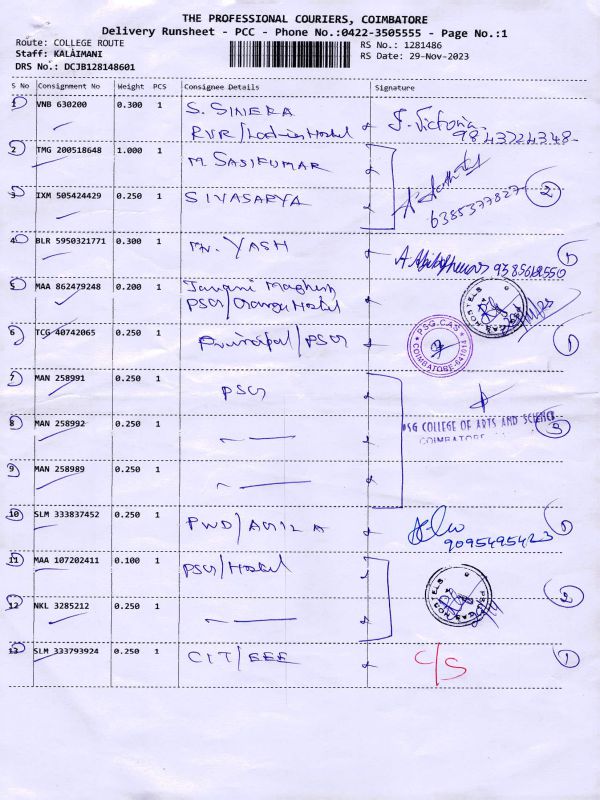 THE PROFESSIONAL COURIERS, COIMBATORE
Delivery Runsheet - PCC - Phone No.:0422-3505555 - Page No.:1
Route: COLLEGE ROUTE
RS No.: 1281486
Staff: KALAIMANI
RS Date: 29-Nov-2023
DRS No.: DCJB128148601
S No Consignment No Weight PCS Consignee Details Signature
1 VNB 630200 0.300 1 S. SINEKA
RVR/Ladies Hostel
J. Victoria
9843724348
2 TMG 200518648 1.000 1 M. SASIKUMAR
3 IXM 505424429 0.250 1 SIVASARYA
6385377827 2
4 BLR 5950321771 0.300 1 Mr. YASH
9385612550 1
5 MAA 862479248 0.200 1 Maghesh
PSG/Orange Hostel
6 TCG 40742065 0.250 1 Principal/PSG
PSG CAS
COIMBATORE-641014
1
7 MAN 258991 0.250 1 PSG
PSG COLLEGE OF ARTS AND SCIENCE
COIMBATORE
3
8 MAN 258992 0.250 1
9 MAN 258989 0.250 1
10 SLM 333837452 0.250 1 PWD/AGILA
9095495423 1
11 MAA 107202411 0.100 1 PSG/Hostel
HOSTELS
2
12 NKL 3285212 0.250 1
13 SLM 333793924 0.250 1 CIT/EEE
C/S 1